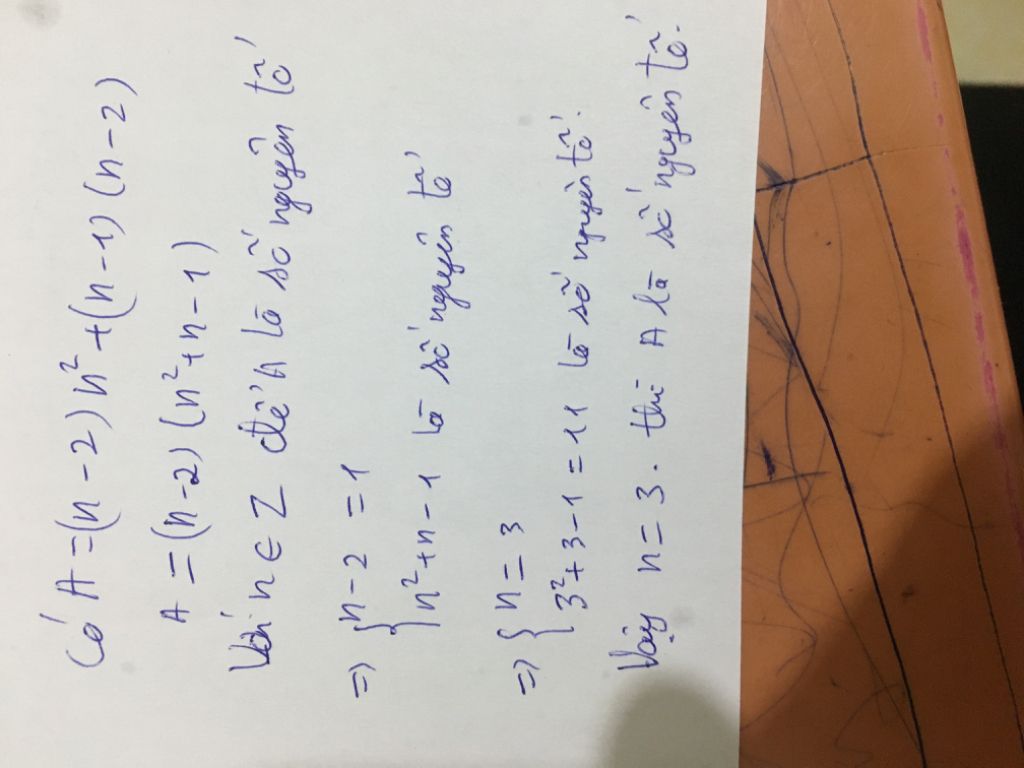 Có A = (n - 2) n² + (n - 1) (n - 2)
A = (n - 2) (n² + n - 1)
Với n ∈ Z để A là số nguyên tố
=> { n - 2 = 1
n² + n - 1 là số nguyên tố
=> { n = 3
3² + 3 - 1 = 11 là số nguyên tố.
Vậy n = 3. thì A là số nguyên tố.